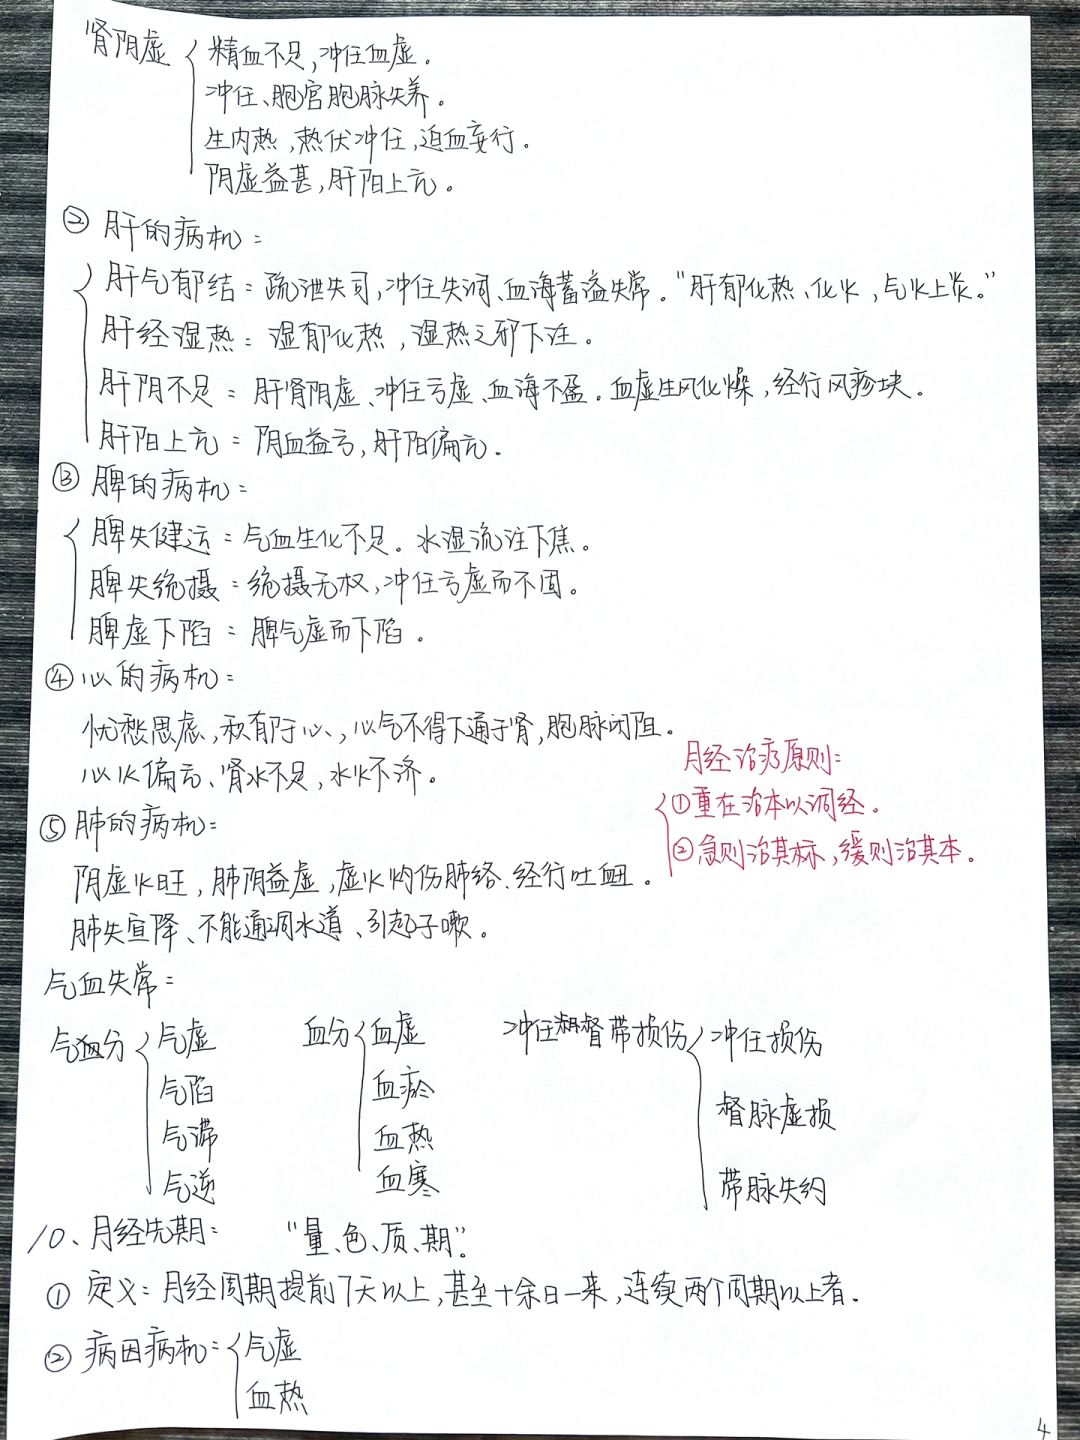 肾阴虚 精血不足,冲任血虚。
冲任、胞宫胞脉失养。
生内热,热伏冲任,迫血妄行。
阴虚益甚,肝阳上亢。
② 肝的病机:
肝气郁结:疏泄失司,冲任失调、血海蓄溢失常。“肝郁化热、化火,气火上炎。”
肝经湿热:湿郁化热,湿热之邪下注。
肝阴不足:肝肾阴虚、冲任亏虚、血海不盈。血虚生风化燥,经行风疹块。
肝阳上亢:阴血益亏,肝阳偏亢。
③ 脾的病机:
脾失健运:气血生化不足。水湿流注下焦。
脾失统摄:统摄无权,冲任亏虚而不固。
脾虚下陷:脾气虚而下陷。
④ 心的病机:
忧愁思虑,积郁于心,心气不得下通于肾,胞脉闭阻。
心火偏亢、肾水不足,水火不济。
月经治疗原则:
①重在治本以调经。
②急则治其标,缓则治其本。
⑤ 肺的病机:
阴虚火旺,肺阴益虚,虚火灼伤肺络、经行吐衄。
肺失宣降、不能通调水道、引起子嗽。
气血失常:
气分 气虚 血分 血虚 冲任督带损伤 冲任损伤
气陷 血瘀 督脉虚损
气滞 血热 带脉失约
气逆 血寒
10、月经先期: “量、色、质、期”。
① 定义:月经周期提前7天以上,甚至十余日一来,连续两个周期以上者.
② 病因病机: 气虚
血热
4